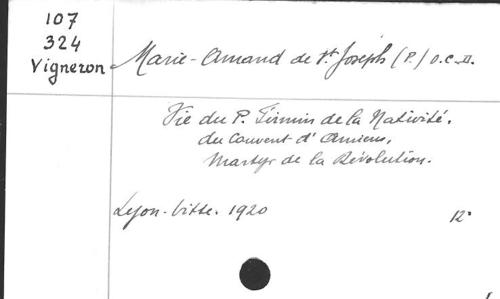 107
324
Vigneron
Marie-Amand de St Joseph (P.) O.C.D.
Vie du P. Firmin de la Nativité,
du Couvent d'Amiens,
Martyr de la Révolution.
Lyon-Vitte. 1920 12°